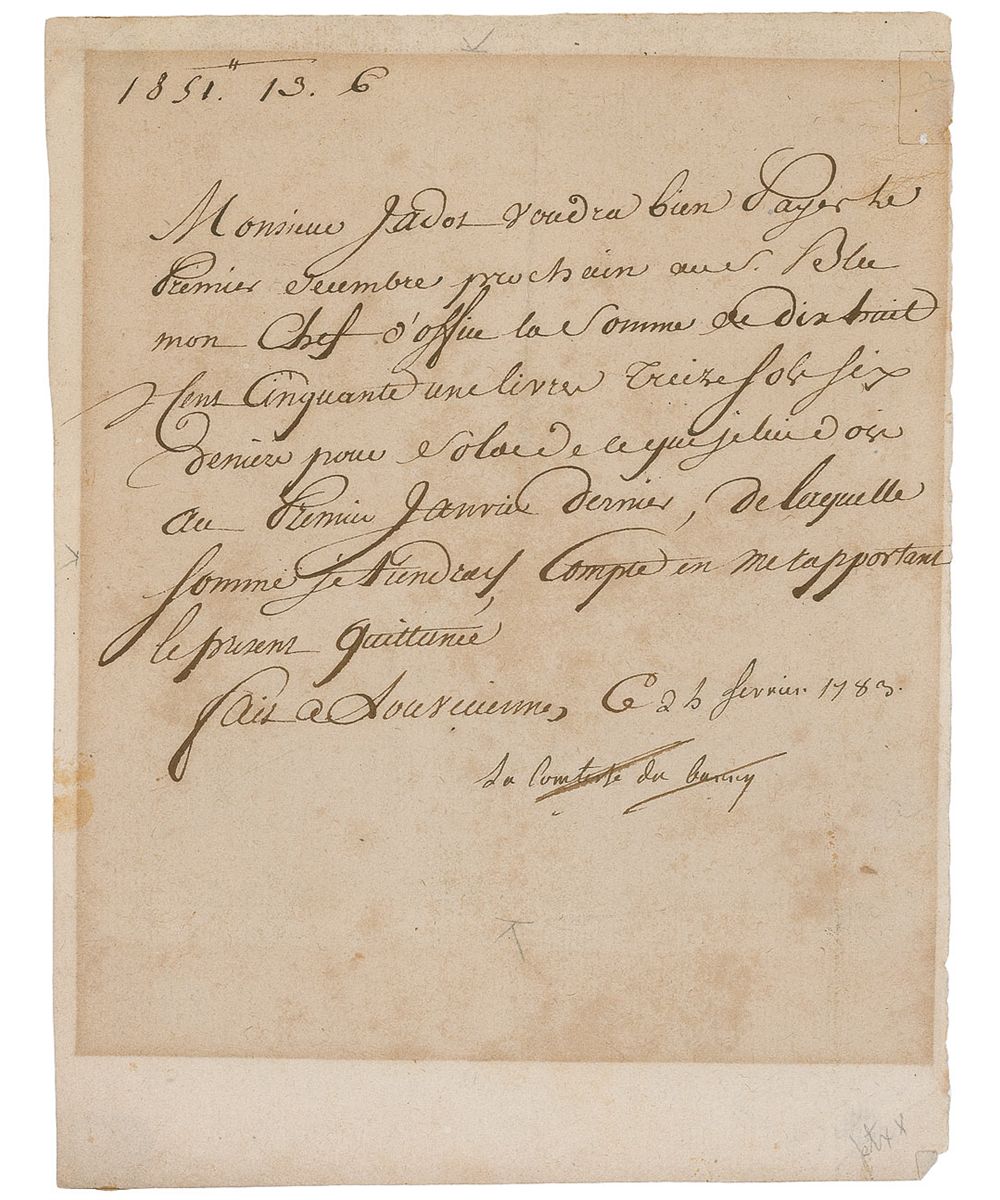 1851.ʺ 13. 6
Monsieur Jadot voudra bien Payer le
Premier decembre prochain au S.
mon Chef d'office la Somme de dix huit
Cent Cinquante une livres treize sols six
deniers pour Solde de ce que je lui dois
au Premier Janvier dernier, de laquelle
somme je tiendrais Compte en me rapportant
le present quittancé
fait a Louveciennes Ce fevrier 1783.
La Comtesse du barry